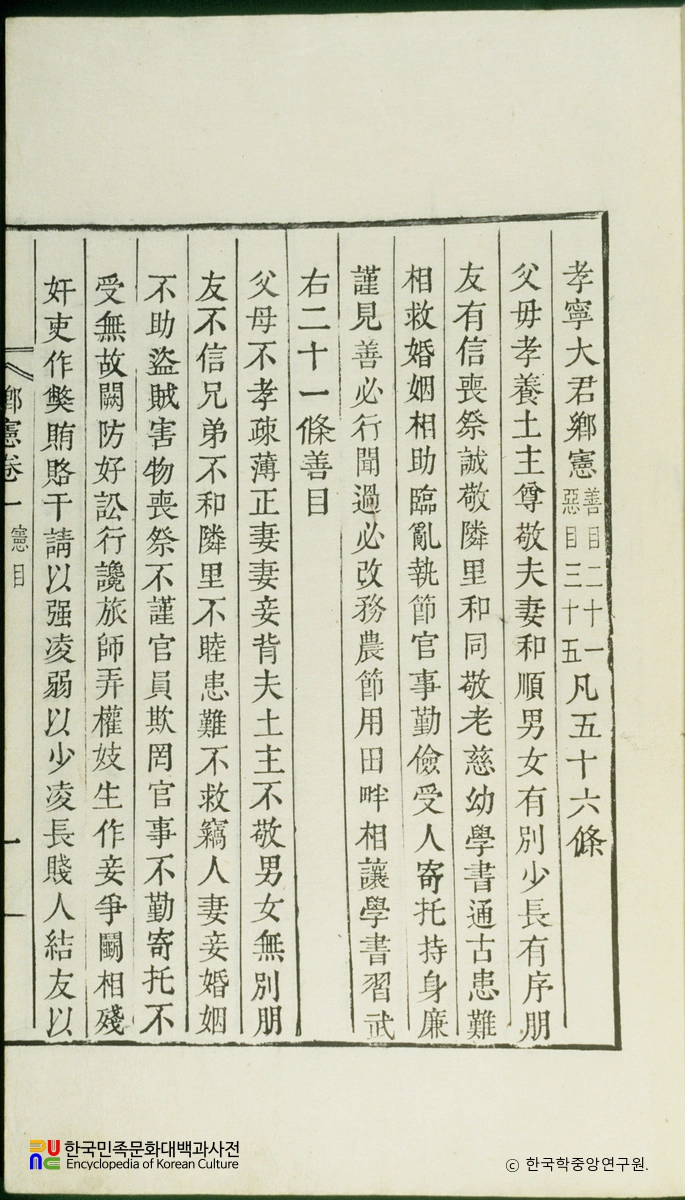 孝寧大君鄉憲善目二十一惡目三十五凡五十六條
父母孝養土主尊敬夫妻和順男女有別少長有序朋
友有信喪祭誠敬隣里和同敬老慈幼學書通古患難
相救婚姻相助臨亂執節官事勤儉受人寄托持身廉
謹見善必行聞過必改務農節用田畔相讓學書習武
右二十一條善目
父母不孝疎薄正妻妻妾背夫土主不敬男女無別朋
友不信兄弟不和隣里不睦患難不救竊人妻妾婚姻
不助盜賊害物喪祭不謹官員欺罔官事不勤寄托不
受無故闕防好訟行讒旅師弄權妓生作妾爭鬪相殘
奸吏作獘賄賂干請以强凌弱以少凌長賤人結友以
鄉憲卷一 憲目 一
한국민족문화대백과사전
Encyclopedia of Korean Culture
ⓒ 한국학중앙연구원.